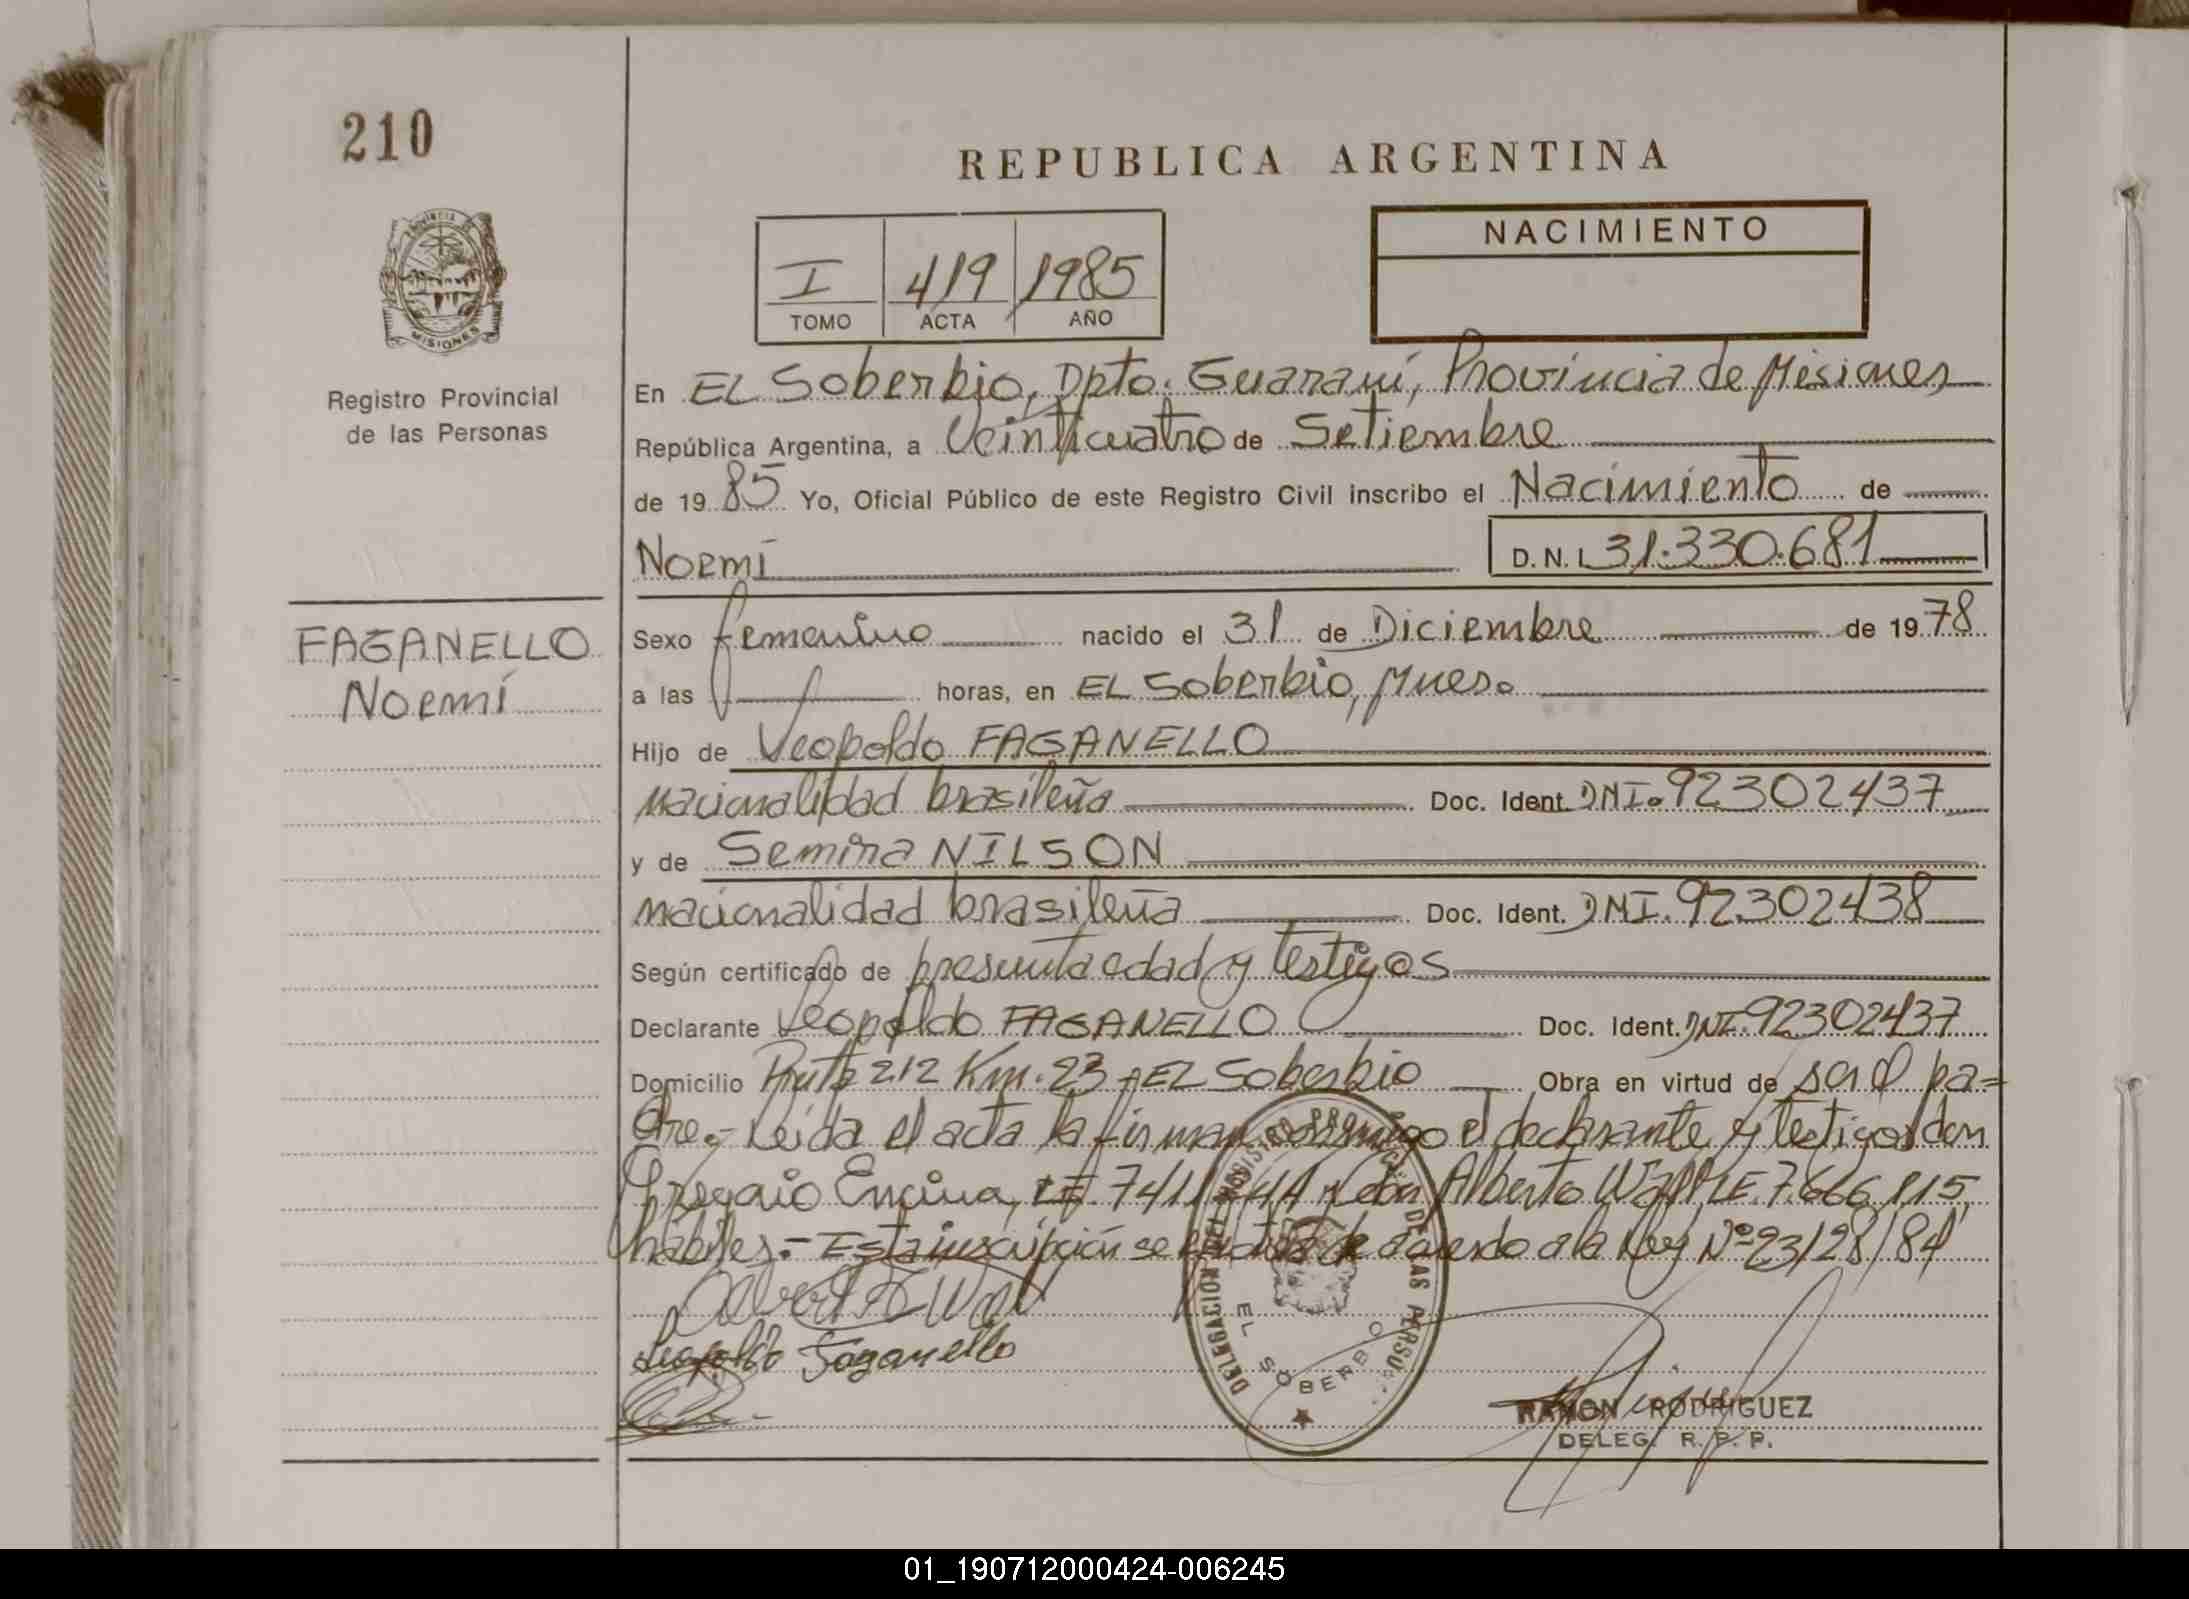 210
REPUBLICA ARGENTINA
PROVINCIA
MISIONES
Registro Provincial
de las Personas
I 419 1985
TOMO ACTA AÑO
NACIMIENTO
En EL Soberbio, Dpto. Guaraní, Provincia de Misiones
República Argentina, a Veinticuatro de Setiembre
de 1985 Yo, Oficial Público de este Registro Civil inscribo el Nacimiento de
Noemí D.N.I. 31.330.681
FAGANELLO
Noemí
Sexo femenino nacido el 31 de Diciembre de 1978
a las horas, en EL Soberbio, Mnes.
Hijo de Leopoldo FAGANELLO
nacionalidad brasileña Doc. Ident. DNI. 92302437
y de Semira NILSON
nacionalidad brasileña Doc. Ident. DNI. 92302438
Según certificado de presunta edad y testigos
Declarante Leopoldo FAGANELLO Doc. Ident. DNI. 92302437
Domicilio Ruta 212 Km. 23 - EL Soberbio Obra en virtud de ser el pa=
dre.- Leída el acta la firman conmigo el declarante y testigos don
Encina, LE 741 y don Alberto LE. 7.666.115,
hábiles.- Esta inscripción se de acuerdo a la Ley Nº 23128/84
DELEGACION DEL REGISTRO PROVINCIAL DE LAS PERSO
EL SOBERBIO
Leopoldo Faganello
RAMON RODRIGUEZ
DELEG. R. P. P.
01_190712000424-006245